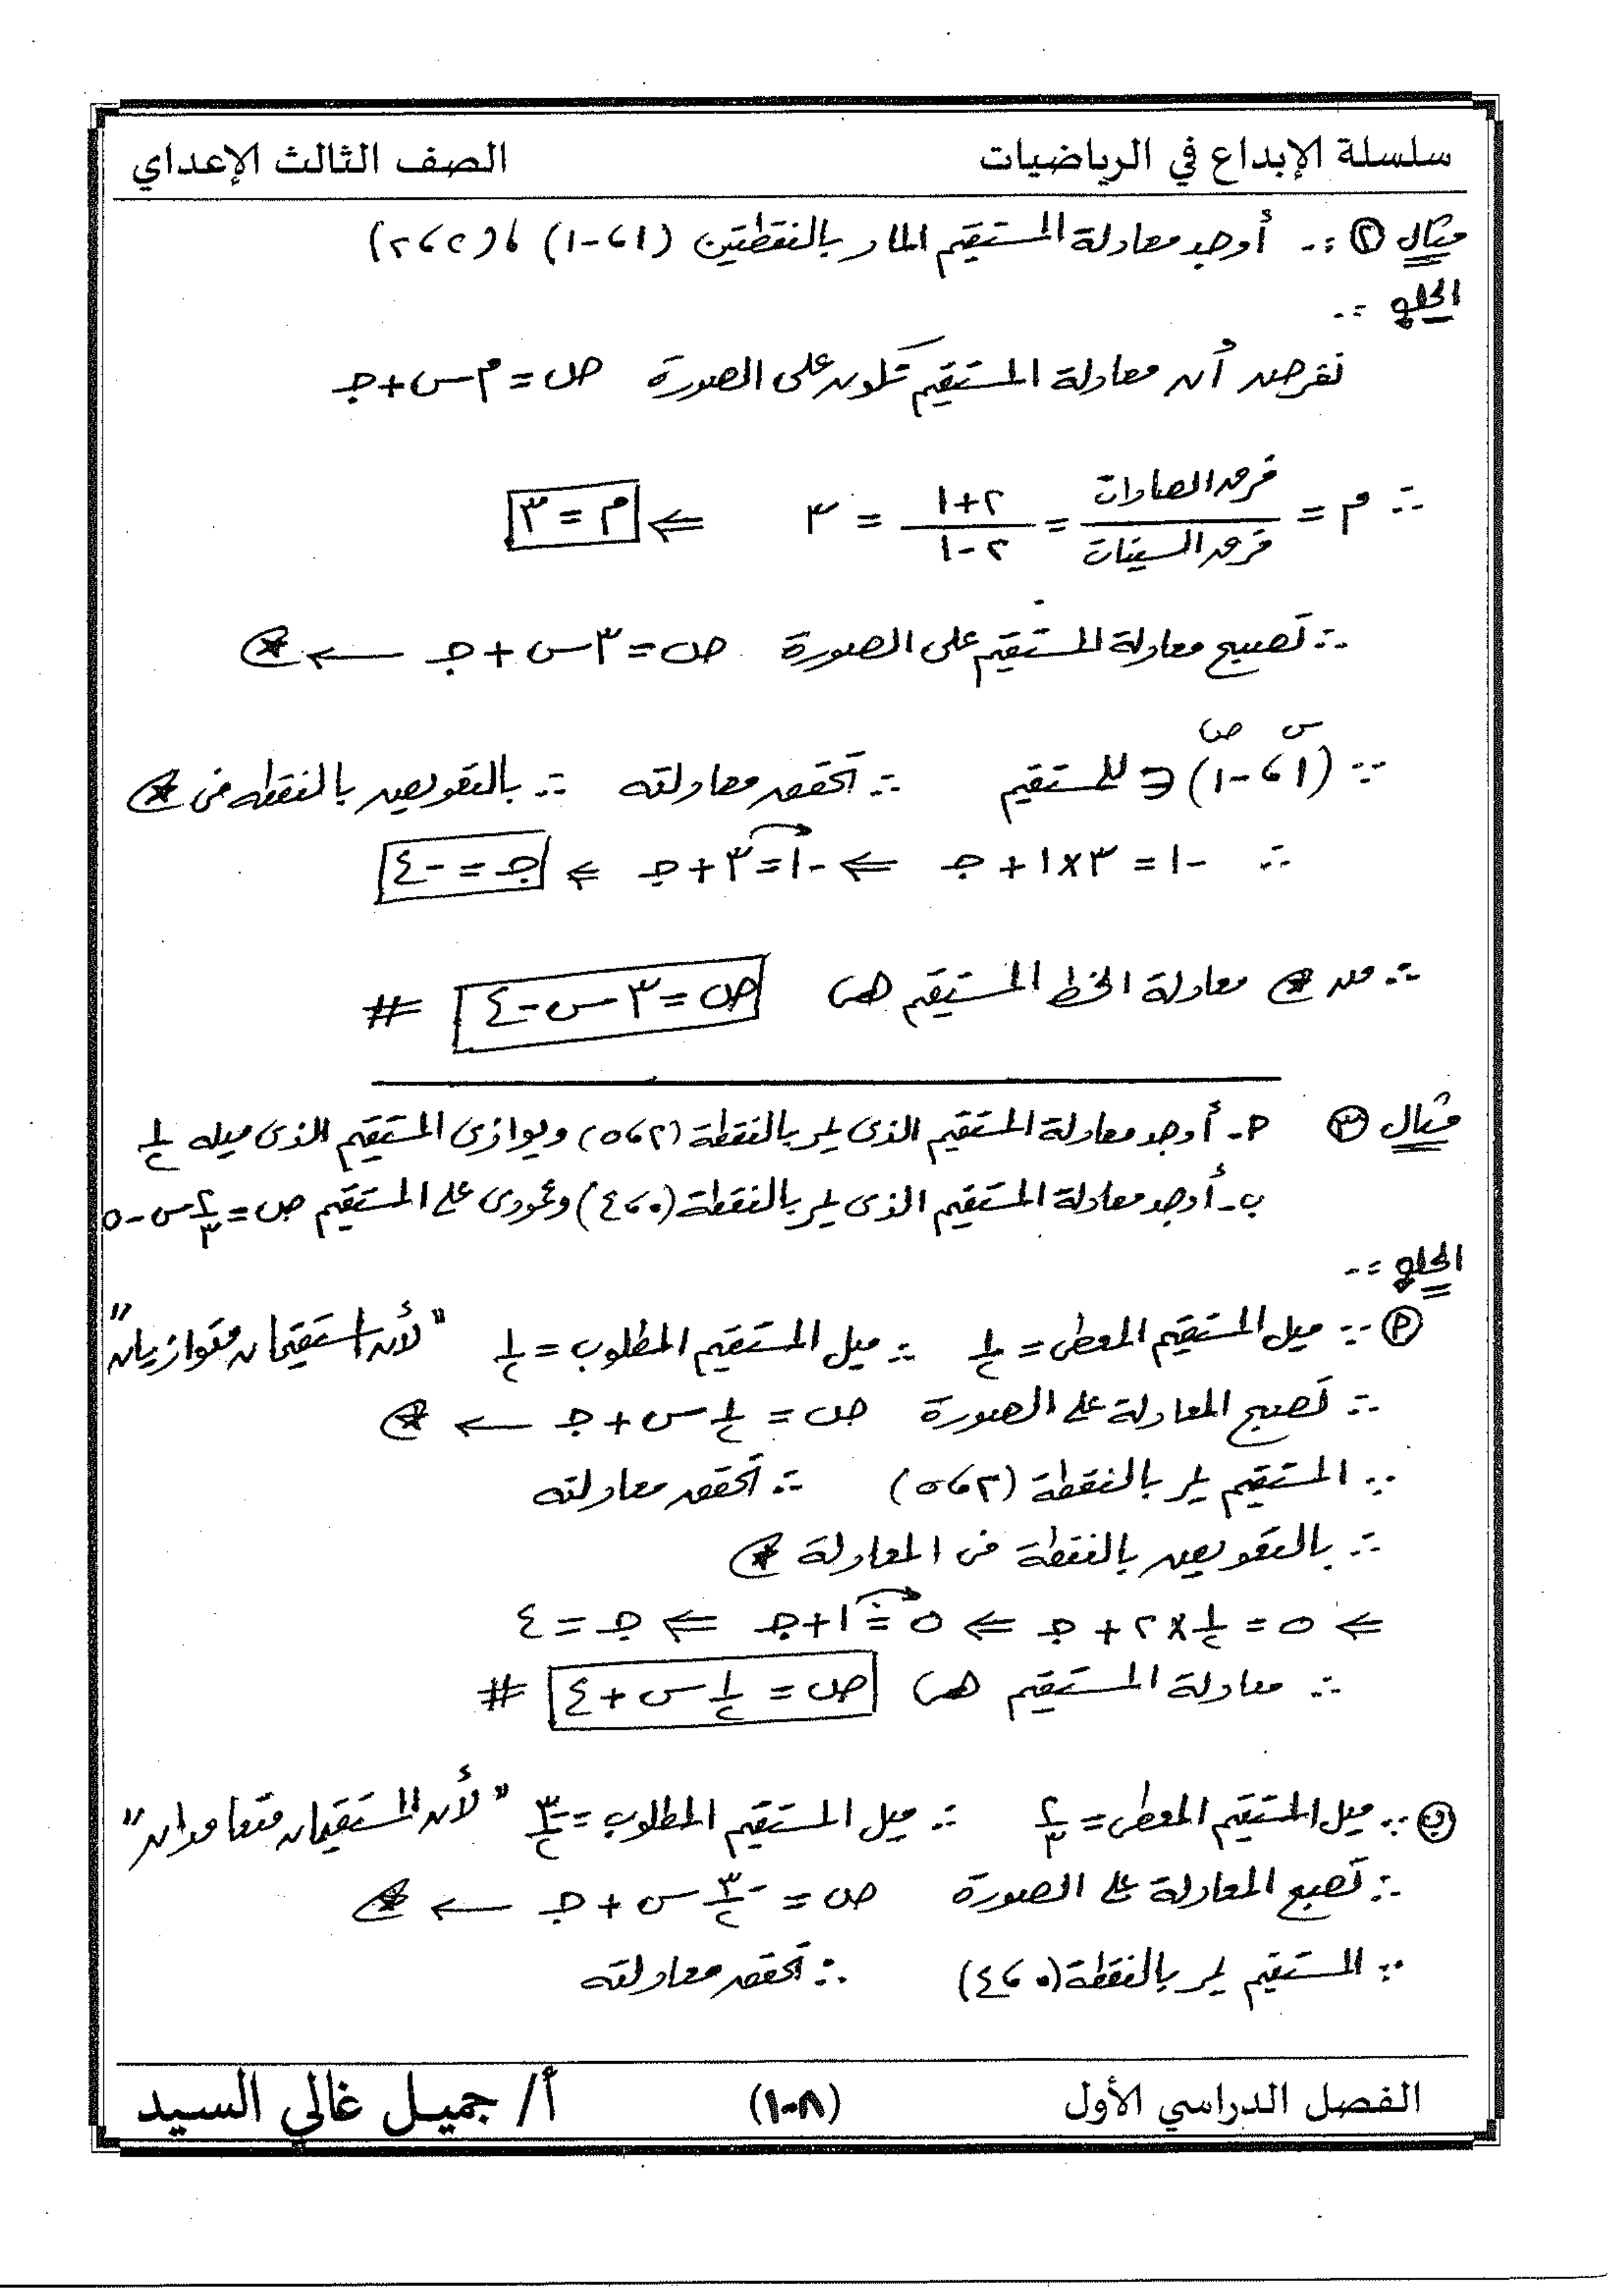 سلسلة الإبداع في الرياضيات
الصف الثالث الإعداي
مثال (٢) :- أوجد معادلة المستقيم المار بالنقطتين (١ ، -١) ، (٢ ، ٢)
الحل :-
نفرض أن معادلة المستقيم تكون على الصورة ص = م س + جـ
∴ م = فرق الصادات / فرق السينات = ٢+١ / ٢-١ = ٣ ⇐ م = ٣
∴ تصبح معادلة المستقيم على الصورة ص = ٣س + جـ ← (*)
س ص
∵ (١ ، -١) ∈ للمستقيم ∴ تحقق معادلته ∴ بالتعويض بالنقطة فى (*)
∴ -١ = ٣×١ + جـ ⇐ -١ = ٣ + جـ ⇐ جـ = -٤
∴ من (*) معادلة الخط المستقيم هى ص = ٣س - ٤ #
مثال (٣) أ- أوجد معادلة المستقيم الذى يمر بالنقطة (٢ ، ٥) ويوازى المستقيم الذى ميله ١/٢
ب- أوجد معادلة المستقيم الذى يمر بالنقطة (٠ ، ٤) وعمودى على المستقيم ص = ٢/٣ س - ٥
الحل :-
(أ) ∵ ميل المستقيم المعطى = ١/٢ ∴ ميل المستقيم المطلوب = ١/٢ "لأن استقيمان متوازيان"
∴ تصبح المعادلة على الصورة ص = ١/٢ س + جـ ← (*)
∵ المستقيم يمر بالنقطة (٢ ، ٥) ∴ تحقق معادلته
∴ بالتعويض بالنقطة فى المعادلة (*)
⇐ ٥ = ١/٢ × ٢ + جـ ⇐ ٥ = ١ + جـ ⇐ جـ = ٤
∴ معادلة المستقيم هى ص = ١/٢ س + ٤ #
(ب) ∵ ميل المستقيم المعطى = ٢/٣ ∴ ميل المستقيم المطلوب = -٣/٢ "لأن المستقيمان متعامدان"
∴ تصبح المعادلة على الصورة ص = -٣/٢ س + جـ ← (*)
∵ المستقيم يمر بالنقطة (٠ ، ٤) ∴ تحقق معادلته
الفصل الدراسي الأول
(١٠٨)
أ/ جميل غالي السيد